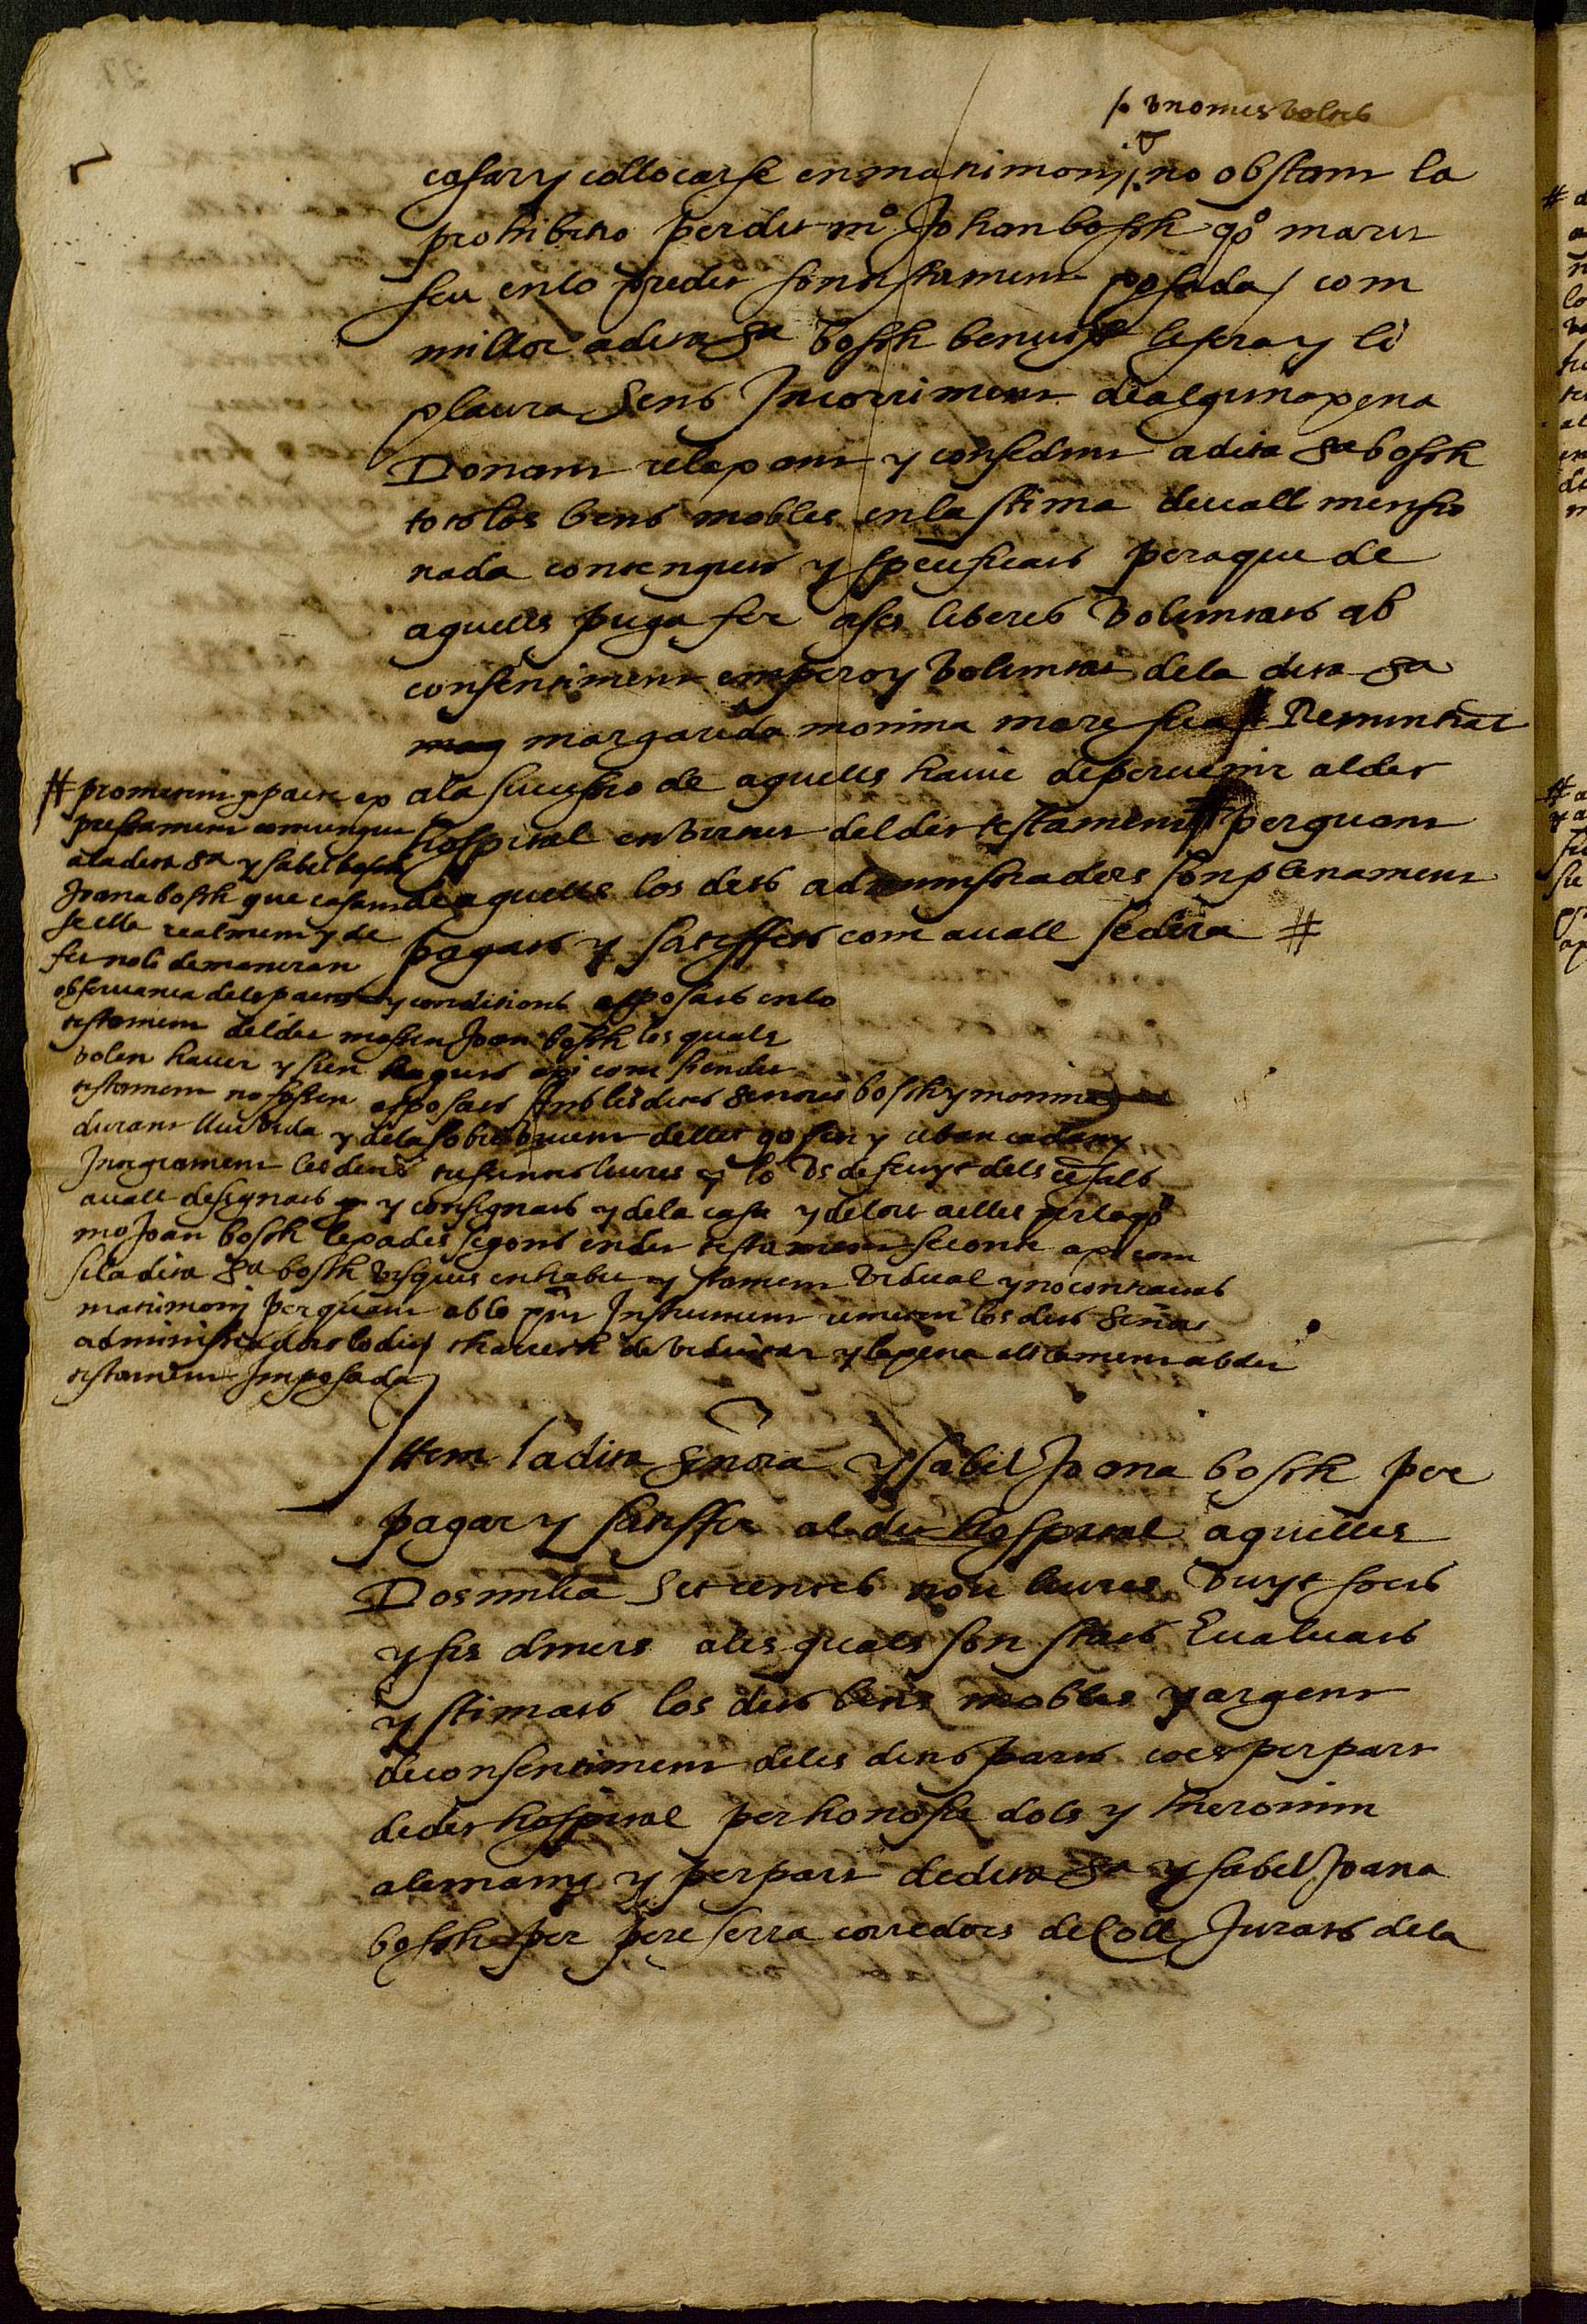 /o vnomes voltes
casar y collocarse en matrimonj /. no obstant la
prohibitio per dit mº Johan bosch qº marit
seu en lo predit son testament posada / com
millor a dita Sra bosch ben vist li sera y li
plaura sens Incorriment de alguna pena
Donant relaxant y consedint a dita Sra bosch
tots los bens mobles en la stima devall mensio
nada contenguts y speificats pera que de
aquells puga fer a ses liberes voluntats ab
consentiment empero y voluntat dela dita Sra
mag margarida monina mare sua Renuntiat
ala successio de aquells havie de pervenir al dit
hospital en virtut del dit testament # per quant
de aquells los dits administradors son plenament
pagats y satisffets com avall se dira #
# prometim y pacte ex
pressament comvingut
ala dita Sra ysabel bosch
Joana bosch que casant
se ella realment y de
fet noli demaneran
observancia dels pactes y conditions apposats en lo
testament del dit mossen Joan bosch los quals
volen haver y sien haguts axi com si en dit
testament no fossen apposats Ans les dites Senores bosch y monina
durant llur vida y dela sobrevivent delles gosen y reban cadany
Integrament les dites tresentes liures y lo vs de fruyt dels censals
avall designats y consignats y dela casa y delort a elles per lo qº
mº Joan bosch lexades segons en dit testament se conte axi com
si la dita Sra bosch visques en habit y stament vidual y no contractas
matrimonj per quant ab lo pnt Instrument remeten los dits Senors
administradors lo dit charrech de viduitat y la pena ... ab dit
testament Imposada
Ittem la dita Snora ysabel Joana bosch per
pagar y satisffer al dit hospital aquelles
Dos milia set centes nou liures vuyt sous
y sis diners ales quals son stats Evaluats
y stimats los dits bens mobles y argent
de consentiment deles dites parts coes per part
de dit hospital per honofre dols y hieronim
alemany y per part de dita Sra ysabel Joana
bosch per pere serra corredors de Coll Jurats dela